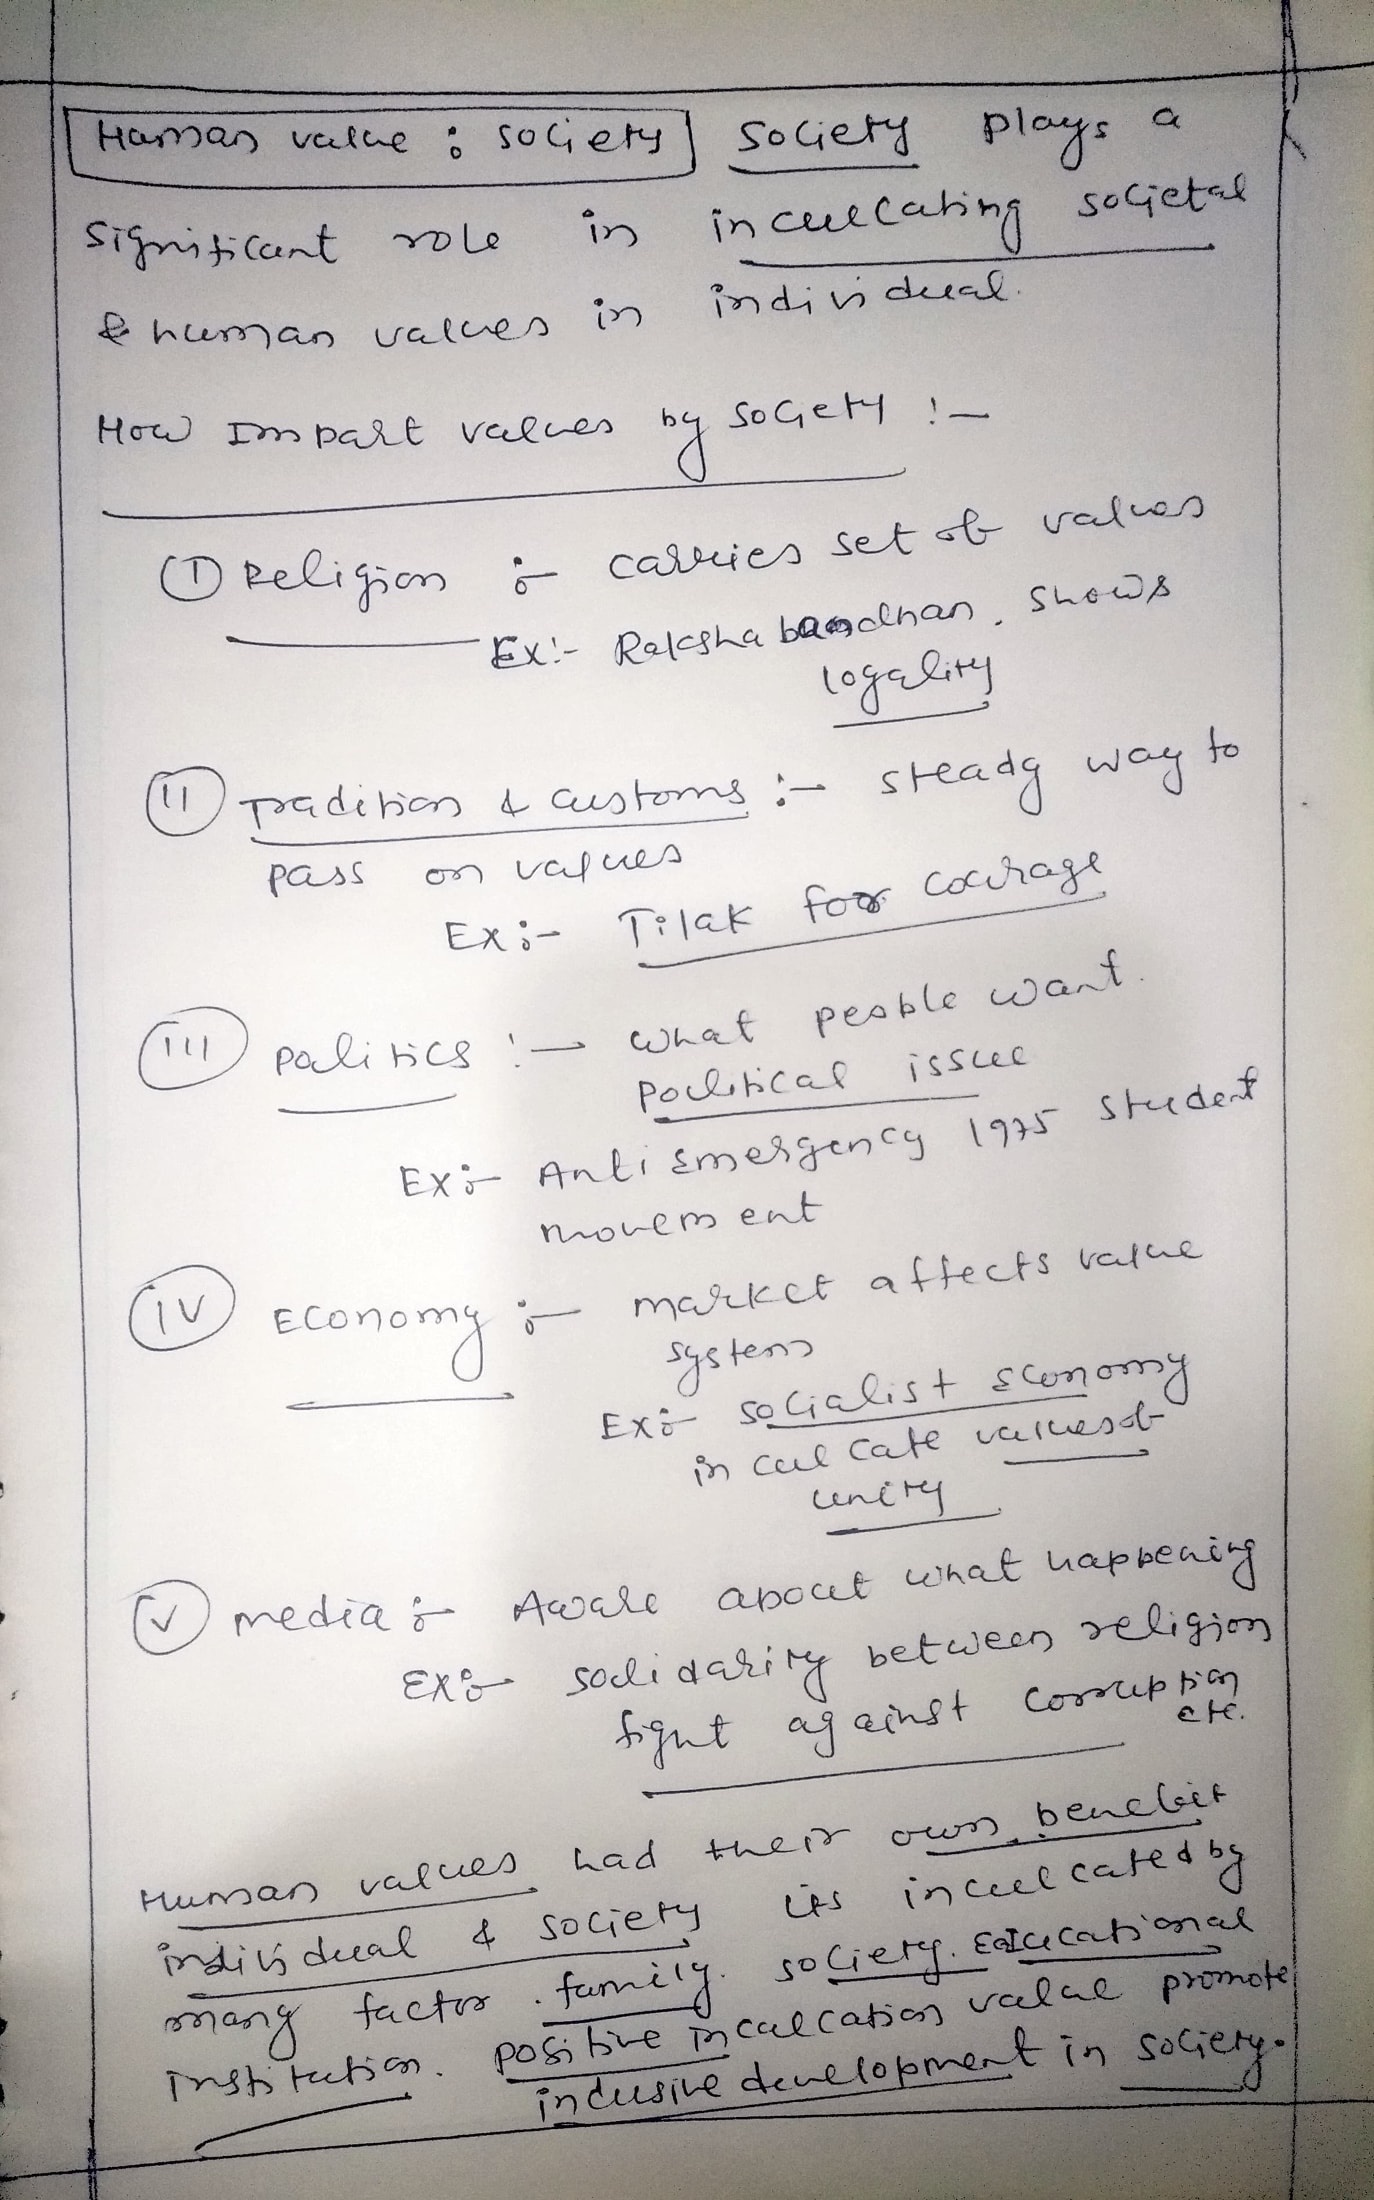 Human value : society society plays a
significant role in inculcating societal
& human values in individual.
How Impart values by society :-
(I) Religion :- carries set of values
Ex:- Raksha bandhan, shows
logality
(II) Tradition & customs :- steady way to
pass on values
Ex:- Tilak for courage
(III) politics :- what people want.
poulitical issue
Ex:- Anti Emergency 1975 student
movement
(IV) Economy :- market affects value
system
Ex:- socialist Economy
inculcate values of
unity
(V) media :- Aware about what happening
Ex:- solidarity between religion
fight against corruption
etc.
Human values had their own benefit
individual & society its inculcated by
many factor. family. society. Educational
institution. positive inculcation value promote
inclusive development in society.